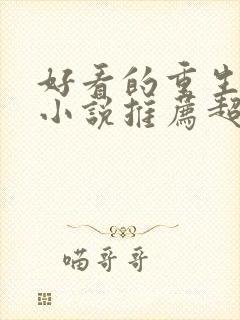 好看的重生
小说推荐超
喵哥哥